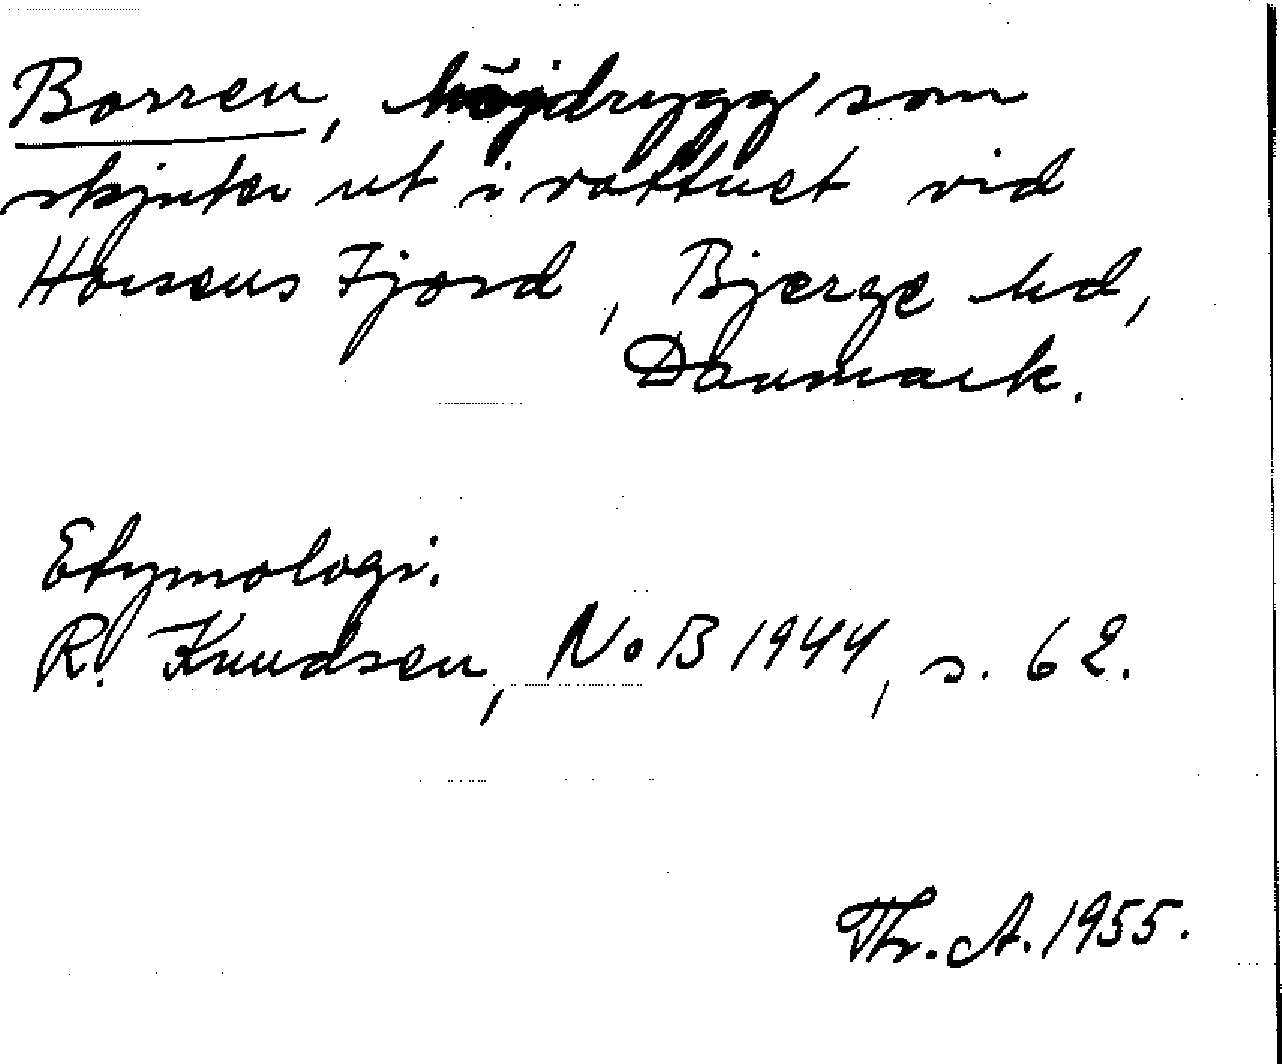 Borren, höjdrygg som
skjuter ut i vattnet vid
Horsens Fjord, Bjerge hd,
Danmark.
Etymologi.
R. Knudsen, NoB 1944, s. 62.
Th. A. 1955.